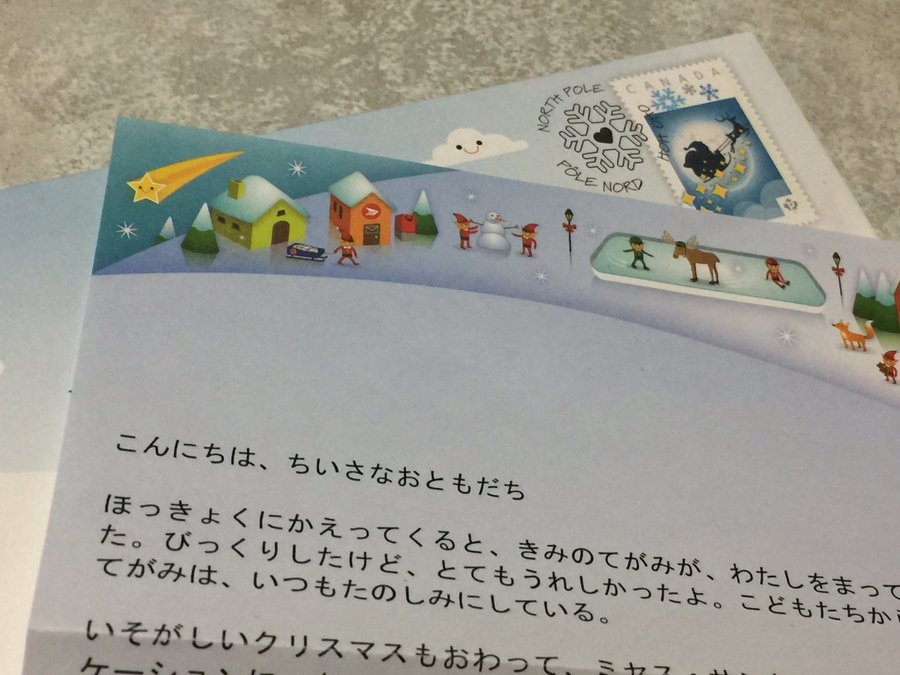 NORTH POLE
PÔLE NORD
HOH OHO
CANADA
P
こんにちは、ちいさなおともだち
ほっきょくにかえってくると、きみのてがみが、わたしをまって
た。びっくりしたけど、とてもうれしかったよ。こどもたちか
てがみは、いつもたのしみにしている。
いそがしいクリスマスもおわって、ミセス・サン
ケーション